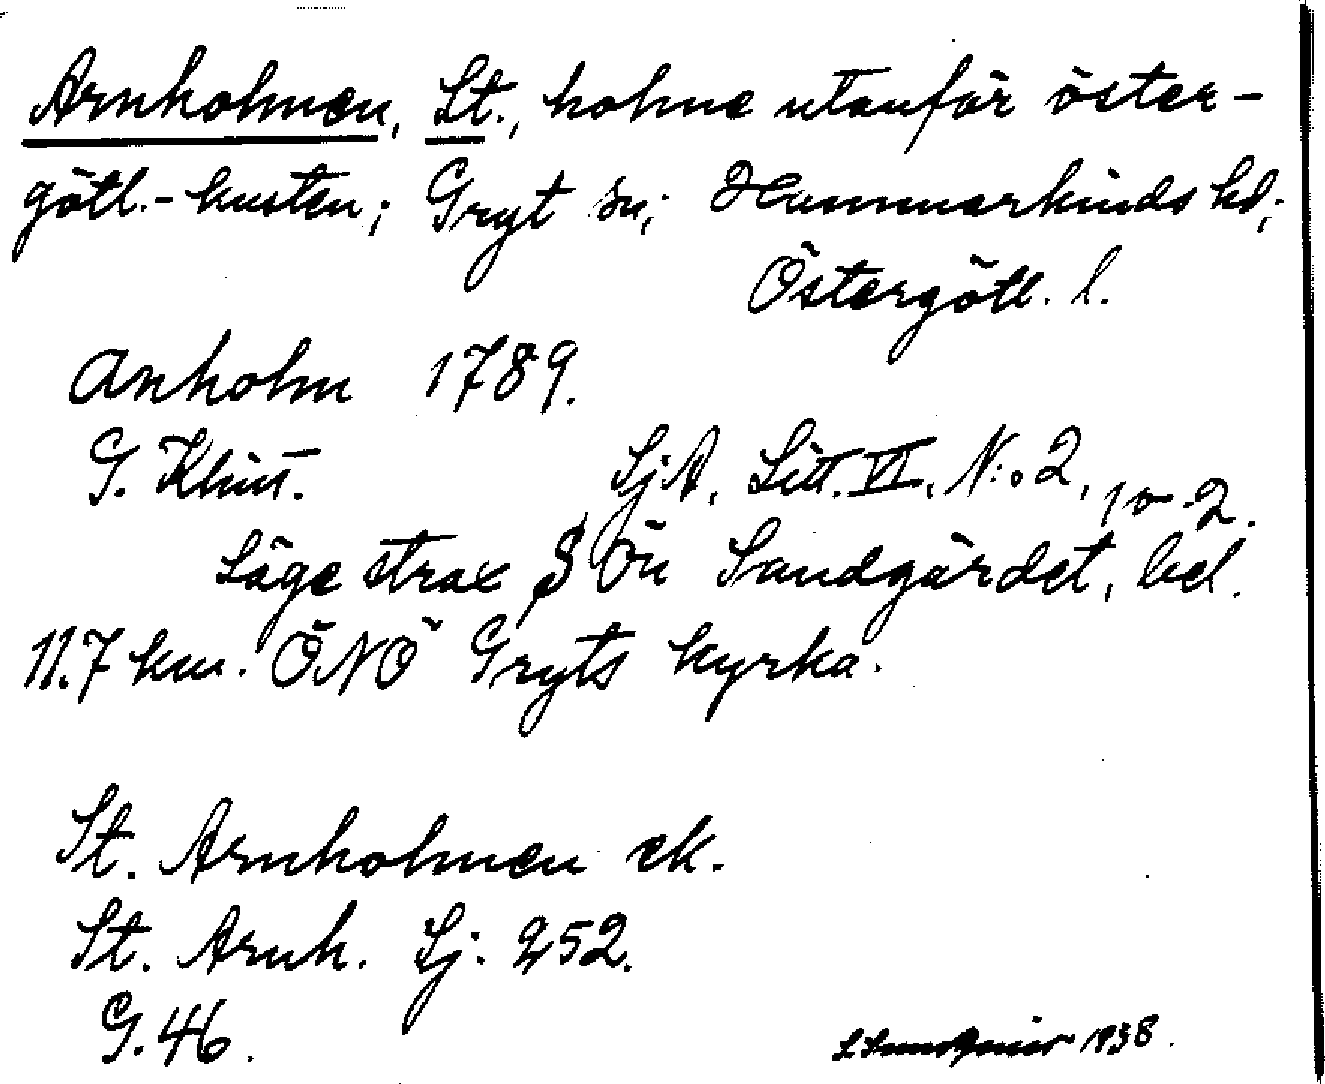 Arnholmen, St., holme utanför öster-
götl.-kusten; Gryt sn; Hammarkinds hd;
Östergötl. l.
Anholm 1789.
G. Klint. SjA, Litt. VI, N:o 2, 2.
Läge strax S Ön Sandgärdet, bel.
11.7 km. ÖNÖ Gryts kyrka.
St. Arnholmen ek.
St. Arnh. Sj: 252.
G. 46.
1938.